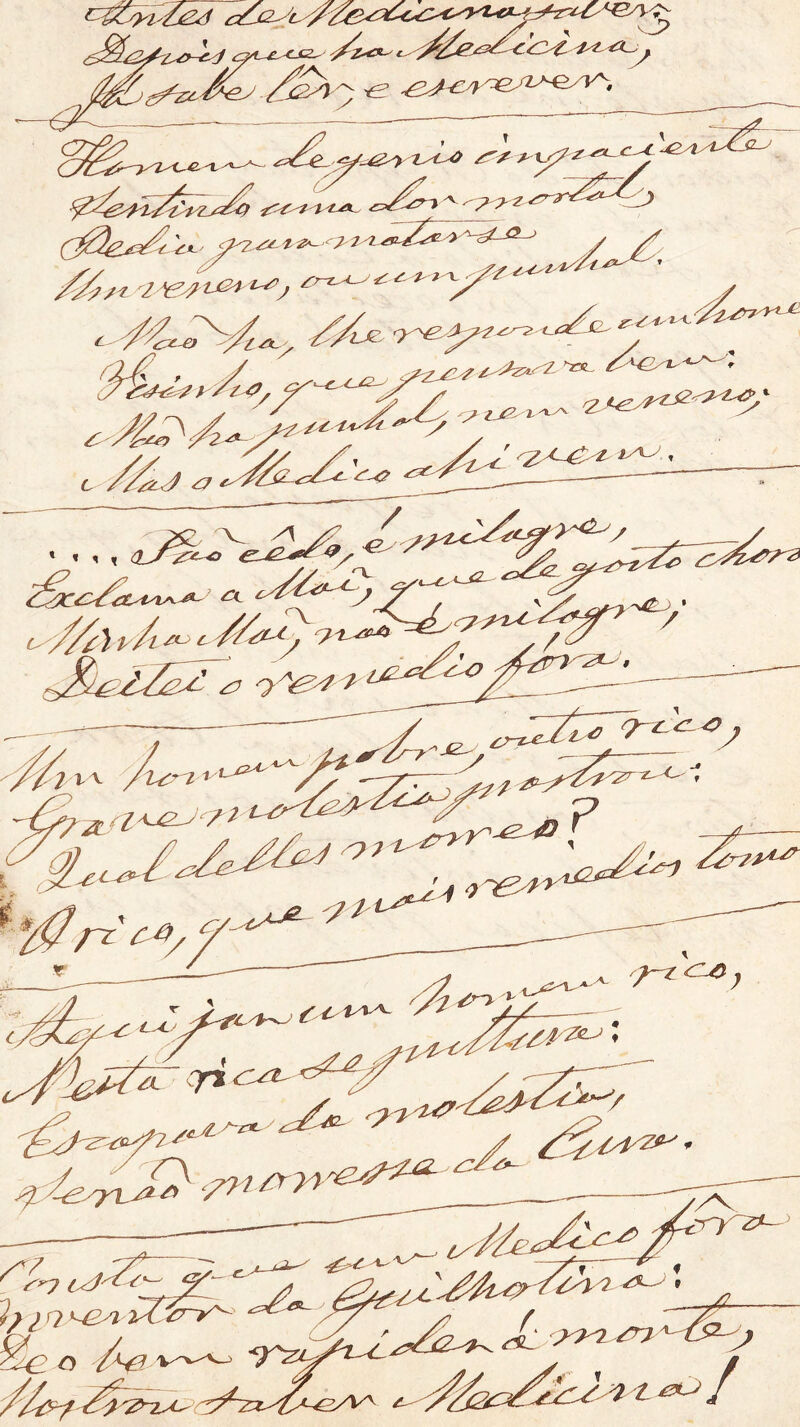 Antes de Medicina saber;
Depois que ha Medicina,
Já sabe lêr, e escrever.
Homem de genio impaciente
Sentindo uma dor mortal,
Pedia para matar-se
Um veneno, ou um punhal.
Naõ ha, lhe responde um home
Visinho, que pensava bem:
Naõ ha punhal, nem veneno;
Mas o Medico ahi vem.
.... Taõ cêdo, é milagre,
Exclama a Maĩ, que de gosto chora
Minha Maĩ, naõ é milagre;
Deitei o remedio fóra.
Um homem pobre, outro rico,
Grave molestia prostrou:
Qual delles morreo?
O rico, que mais remedios tomo
Aqui jaz um homem rico,
Nesta rica sepulttura:
Escapava da molestia,
Senaõ morresse da Cura.
Consta que um Medico fôra
Inventor da Guilhotina:
Deo bem rapidez á morte,
Mostrou saber Medicina!